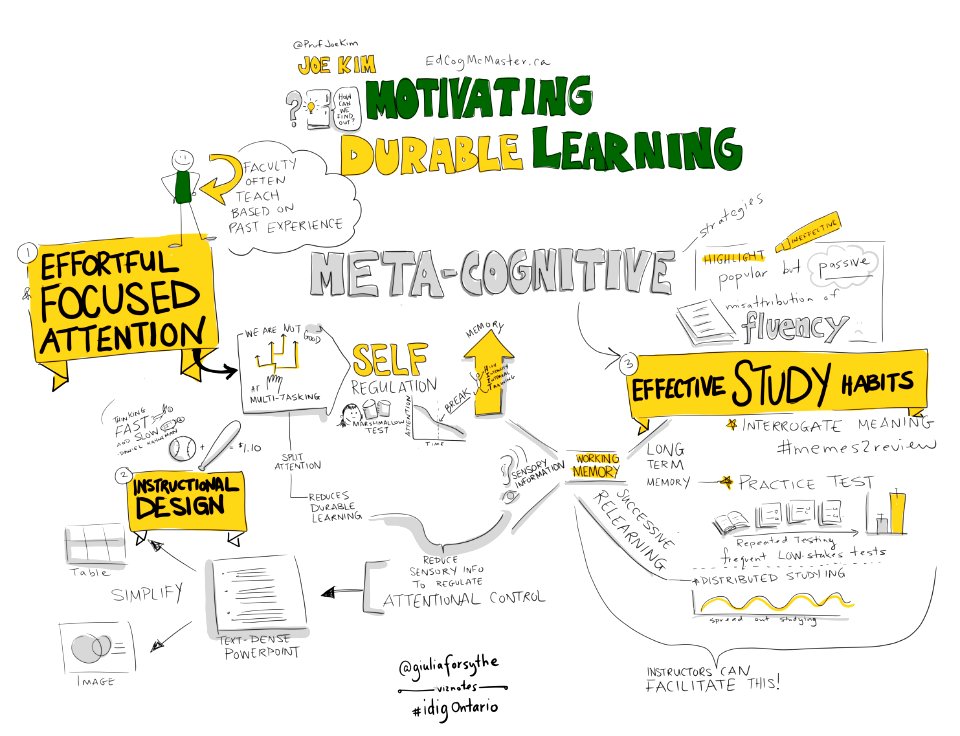 @ProfJoeKim
JOE KIM
EdCogMcMaster.ca
HOW
CAN
WE
FIND
OUT?
MOTIVATING
DURABLE LEARNING
FACULTY
OFTEN
TEACH
BASED ON
PAST EXPERIENCE
1
EFFORTFUL
&
FOCUSED
ATTENTION
META-COGNITIVE
strategies
INEFFECTIVE
HIGHLIGHT
popular but passive
misattribution of
fluency
WE ARE NOT GOOD
AT
MULTI-TASKING
SELF
REGULATION
MARSHMALLOW
TEST
ATTENTION
TIME
BREAK
MEMORY
HIGH
INTENSITY
INTERVAL
TRAINING
3
EFFECTIVE STUDY HABITS
INTERROGATE MEANING
#memes2review
THINKING
FAST
AND SLOW
DANIEL KAHNEMAN
+ = $1.10
SPLIT
ATTENTION
REDUCES
DURABLE
LEARNING
SENSORY
INFORMATION
WORKING
MEMORY
LONG
TERM
MEMORY
PRACTICE TEST
Repeated Testing
frequent LOW-stakes tests
SUCCESSIVE
RELEARNING
DISTRIBUTED STUDYING
spread out studying
2
INSTRUCTIONAL
DESIGN
Table
SIMPLIFY
IMAGE
TEXT-DENSE
POWERPOINT
REDUCE
SENSORY INFO
TO REGULATE
ATTENTIONAL CONTROL
INSTRUCTORS CAN
FACILITATE THIS!
@giuliaforsythe
viznotes
#idigOntario